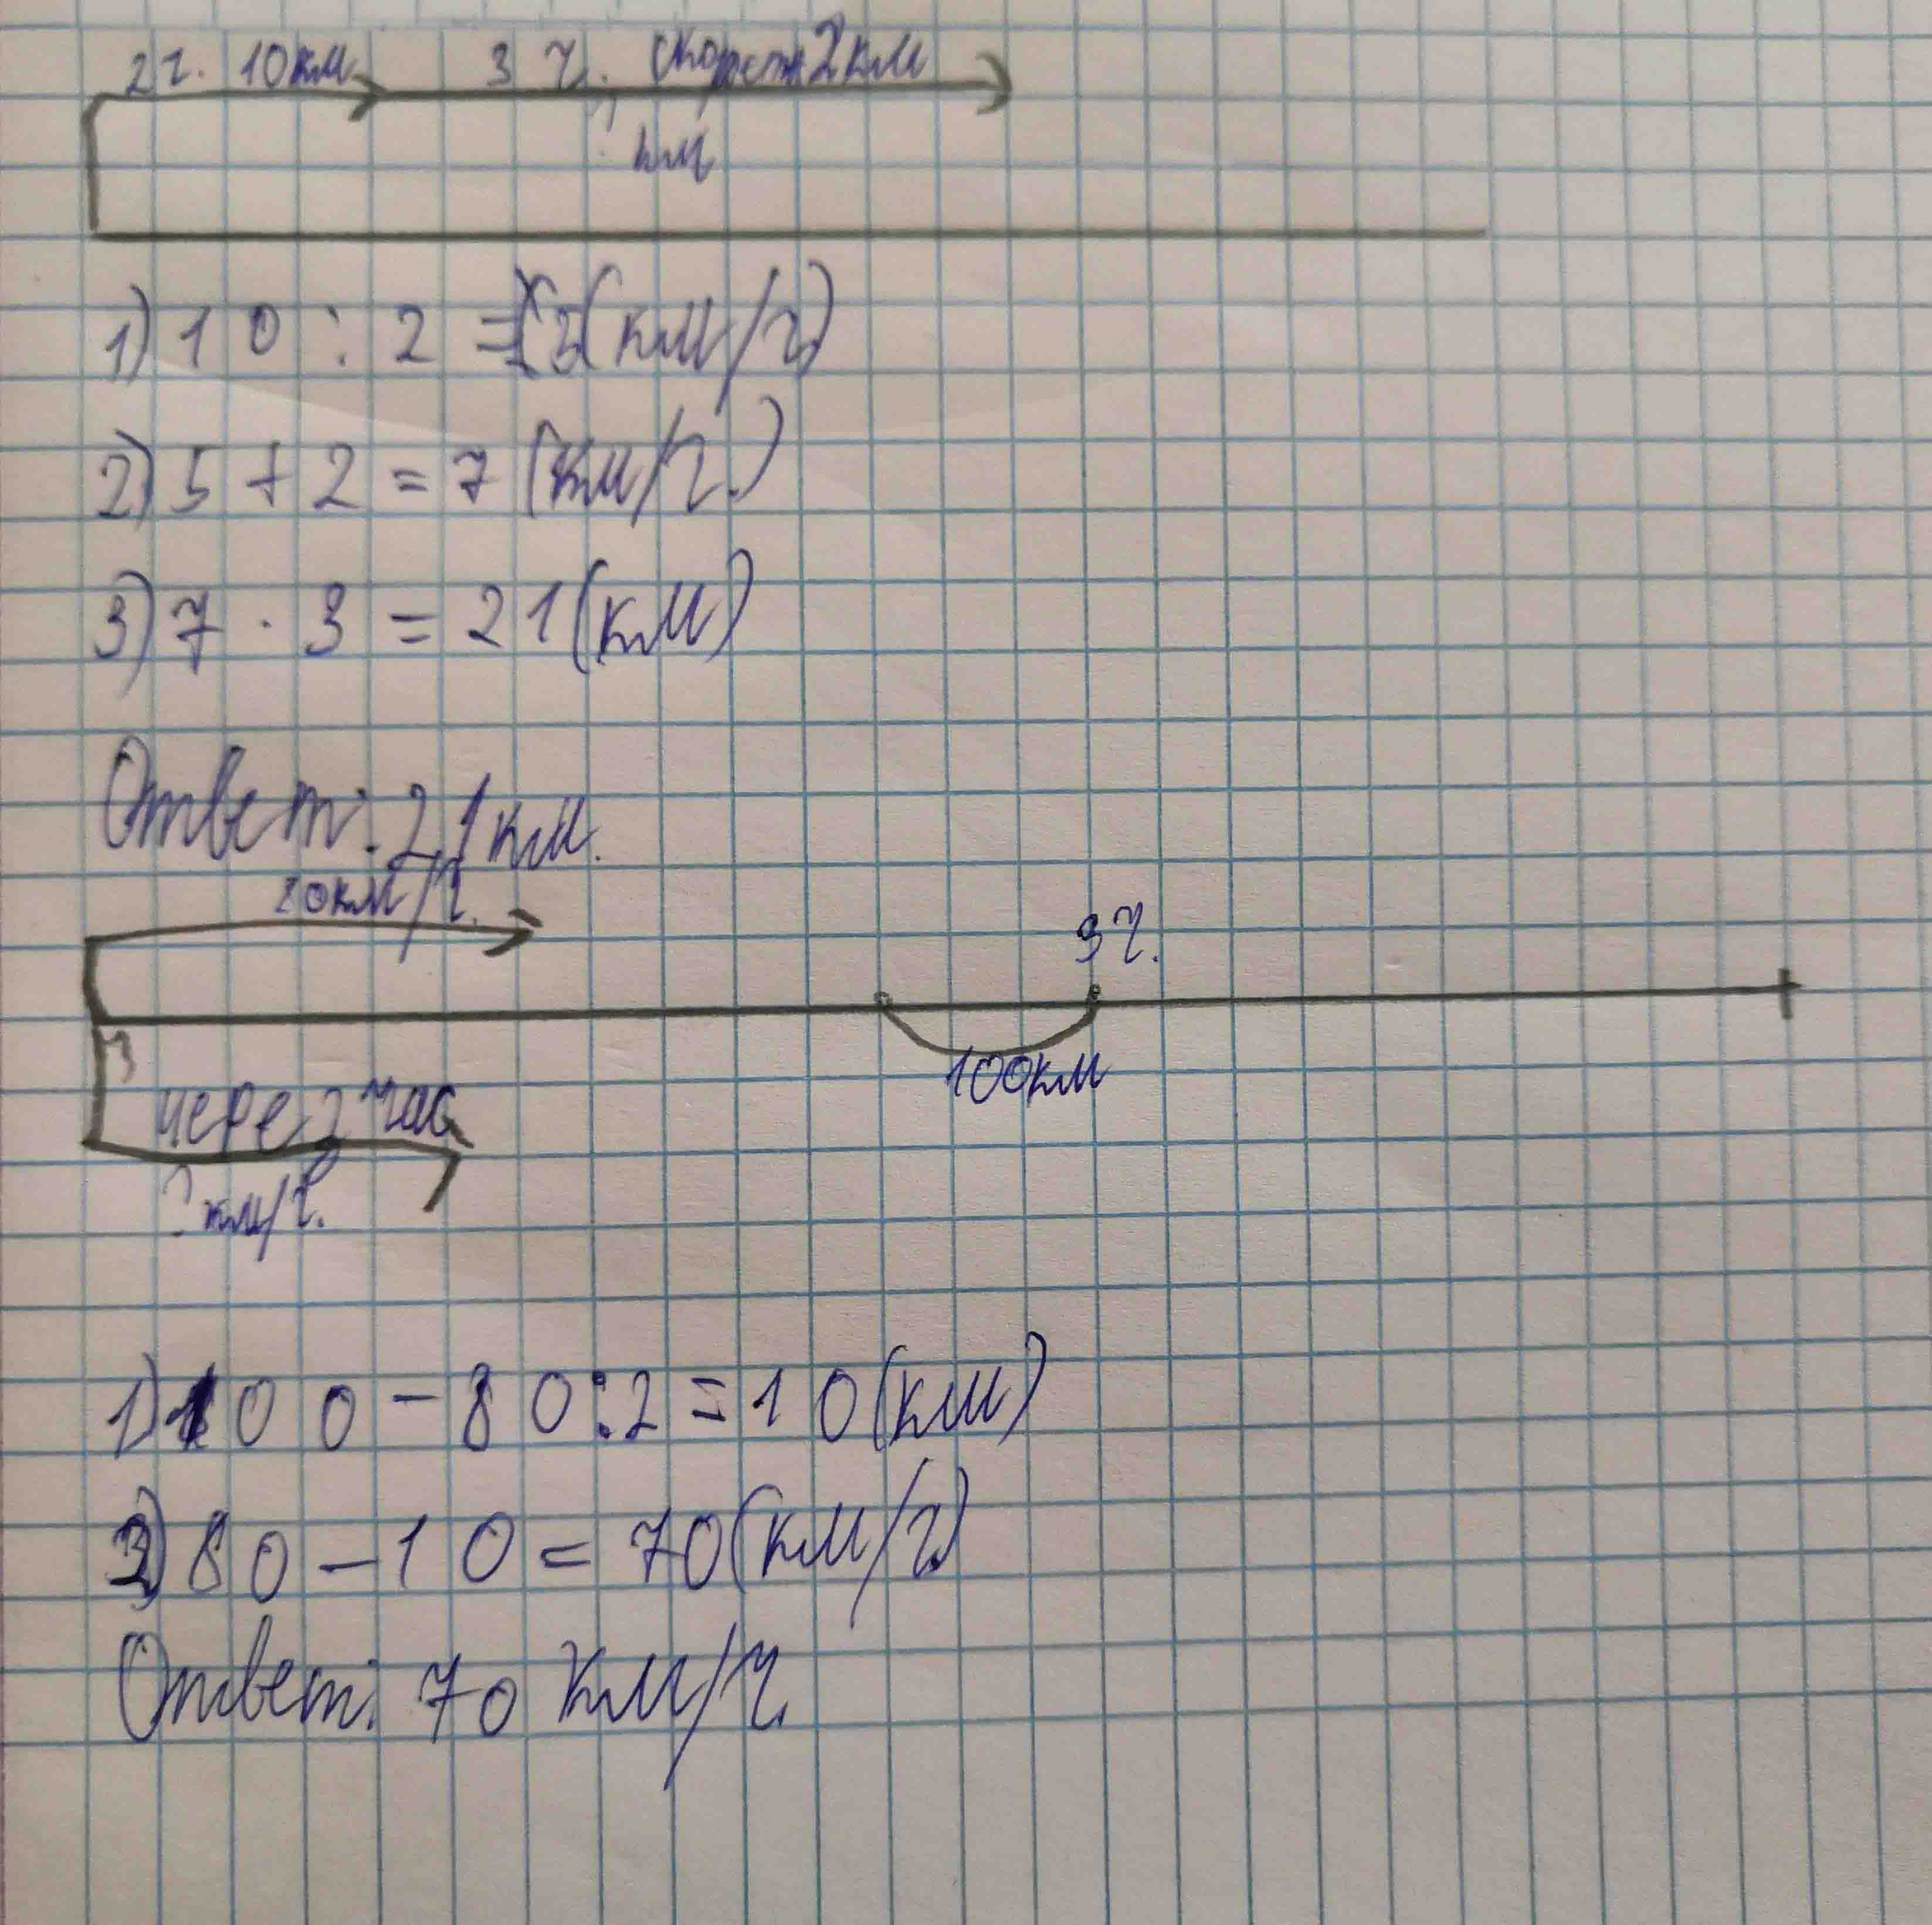 2 ч. 10 км 3 ч. скорость 2 км
? км
1) 10 : 2 = 5 (км/ч)
2) 5 + 2 = 7 (км/ч.)
3) 7 · 3 = 21 (км)
Ответ: 21 км.
км/ч.
3 ч.
100 км
через час
? км/ч.
1) 100 - 80 : 2 = 10 (км)
2) 80 - 10 = 70 (км/ч)
Ответ: 70 км/ч